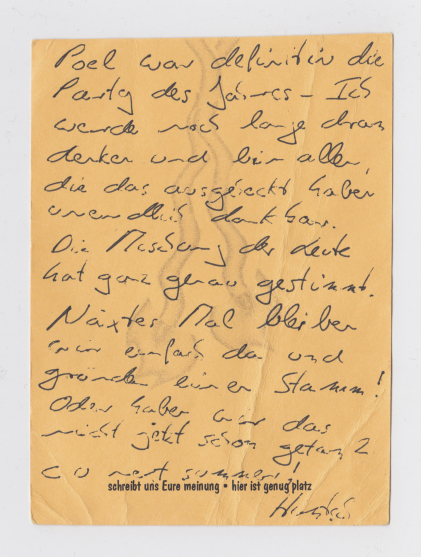 Poel war definitiv die
Party des Jahres – Ich
werde noch lange dran
denken und bin allen,
die das ausgeheckt haben
unendlich dankbar.
Die Mischung der Leute
hat ganz genau gestimmt.
Näxtes Mal bleiben
wir einfach da und
gründen einen Stamm!
Oder haben wir das
nicht jetzt schon getan?
cu next summer!
schreibt uns Eure meinung • hier ist genug platz